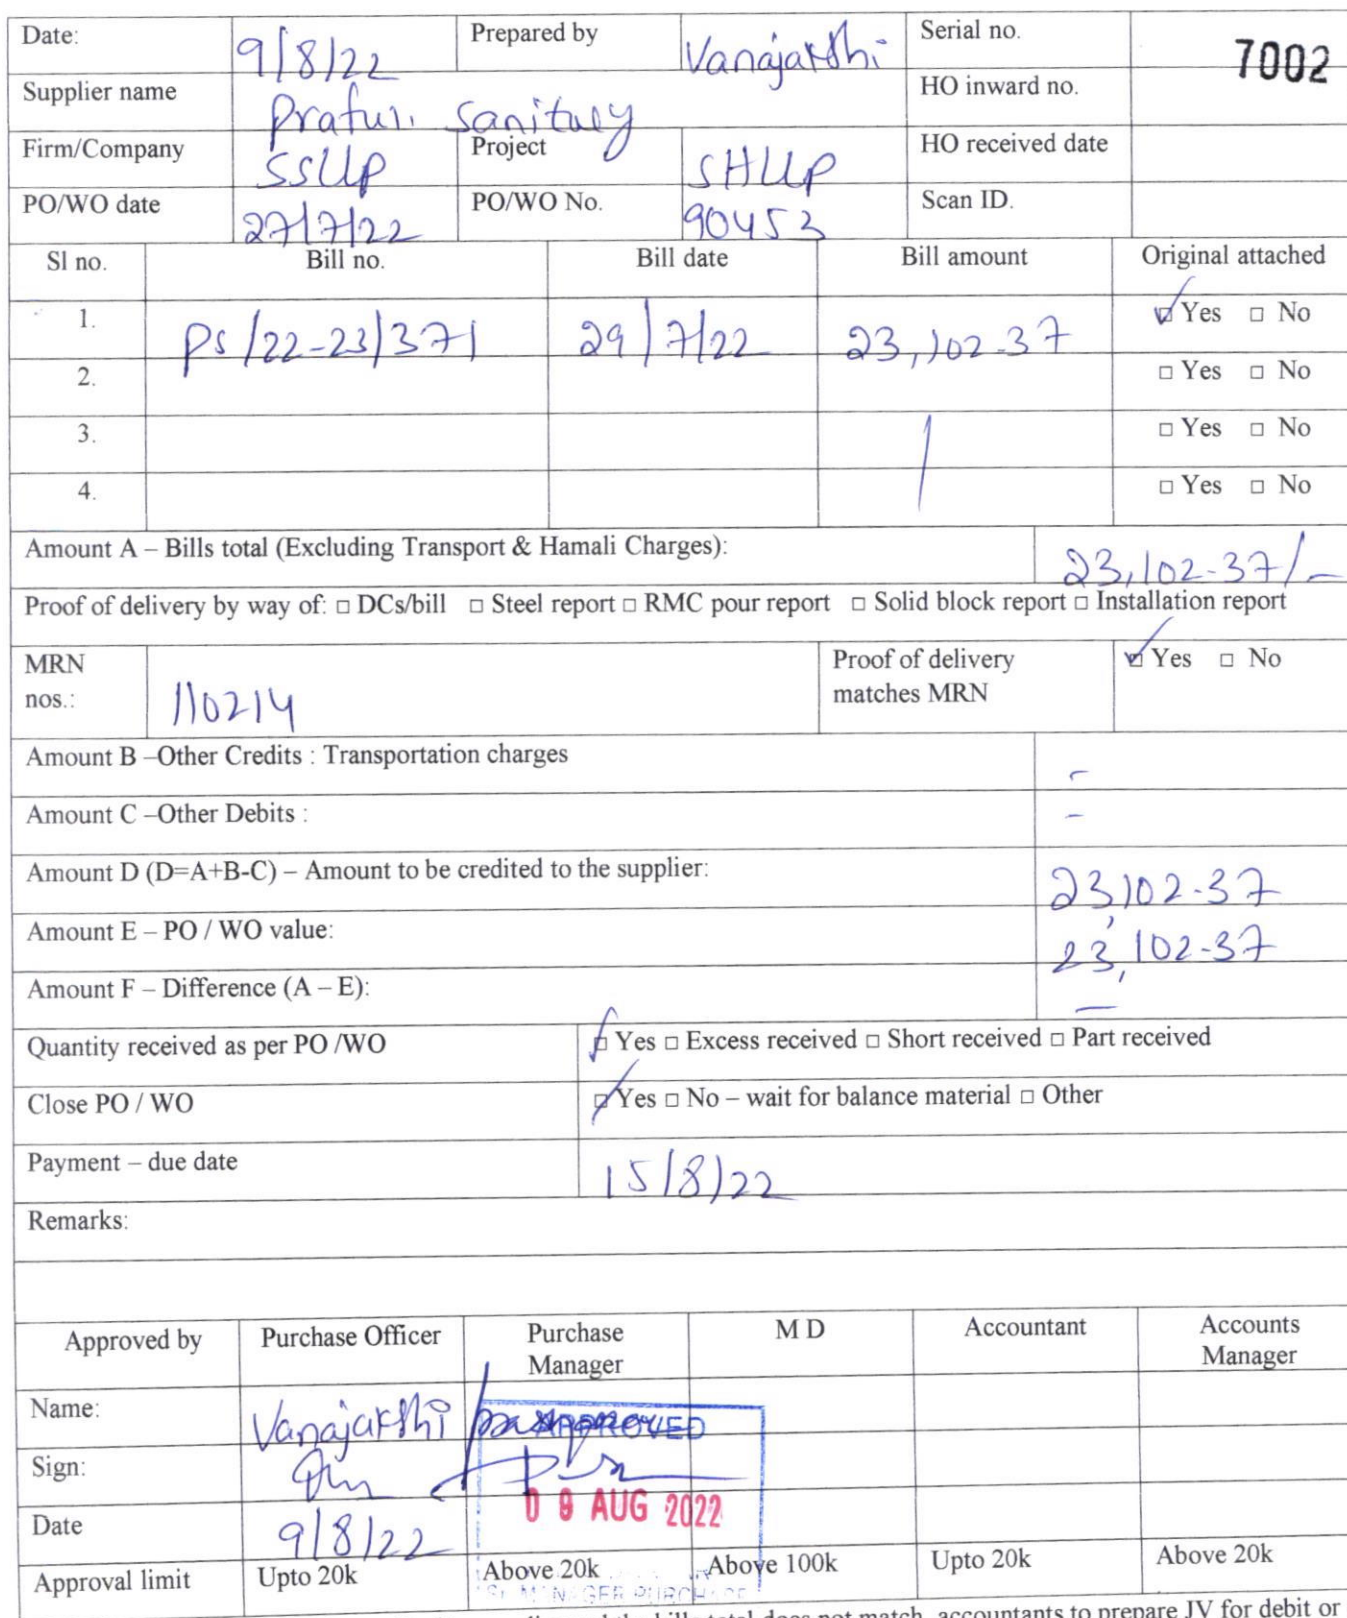 Date: 9/8/22 Prepared by Vanajakshi Serial no. 7002
Supplier name Praful Sanitary HO inward no.
Firm/Company SSLLP Project SHLLP HO received date
PO/WO date 27/7/22 PO/WO No. 90453 Scan ID.
Sl no. Bill no. Bill date Bill amount Original attached
1. PS/22-23/371 29/7/22 23,102-37 ☑ Yes □ No
2. □ Yes □ No
3. □ Yes □ No
4. □ Yes □ No
Amount A – Bills total (Excluding Transport & Hamali Charges): 23,102-37/-
Proof of delivery by way of: □ DCs/bill □ Steel report □ RMC pour report □ Solid block report □ Installation report
MRN nos.: 110214 Proof of delivery matches MRN ☑ Yes □ No
Amount B –Other Credits : Transportation charges -
Amount C –Other Debits : -
Amount D (D=A+B-C) – Amount to be credited to the supplier: 23,102-37
Amount E – PO / WO value: 23,102-37
Amount F – Difference (A – E): -
Quantity received as per PO /WO ☑ Yes □ Excess received □ Short received □ Part received
Close PO / WO ☑ Yes □ No – wait for balance material □ Other
Payment – due date 15/8/22
Remarks:
Approved by Purchase Officer Purchase Manager M D Accountant Accounts Manager
Name: Vanajakshi APPROVED
Sign:
Date 9/8/22 09 AUG 2022
Approval limit Upto 20k Above 20k Above 100k Upto 20k Above 20k
MANAGER PURCHASE
the bills total does not match, accountants to prepare JV for debit or